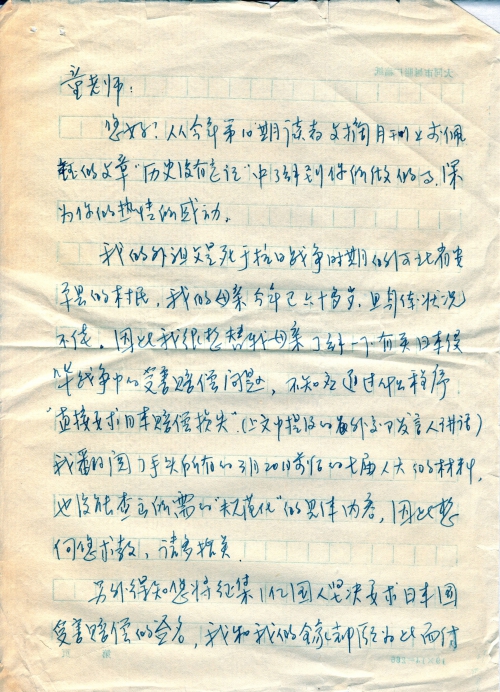 童老师:
您好!从今年第10期读者文摘月刊上刘佩
的文章"历史没有忘记"中了解到你们做的事,深
为你的热情所感动。
我的外祖父是死于抗日战争时期的河北省
县的村民,我的母亲今年已六十多岁,且身体状况
不佳。因此我很想替我母亲了解一下有关日本侵
华战争中的受害赔偿问题,不知应通过什么程序
"直接要求日本赔偿损失"(上文中提及的外交部发言人讲话)
我翻阅了手头所有的3月20日前后的七届人大的材料,
也没能查到所需的"规范化"的具体内容,因此想
向您求教,请多指点。
另外得知您将征集1亿国人坚决要求日本国
受害赔偿的签名,我和我的全家都愿为此而付